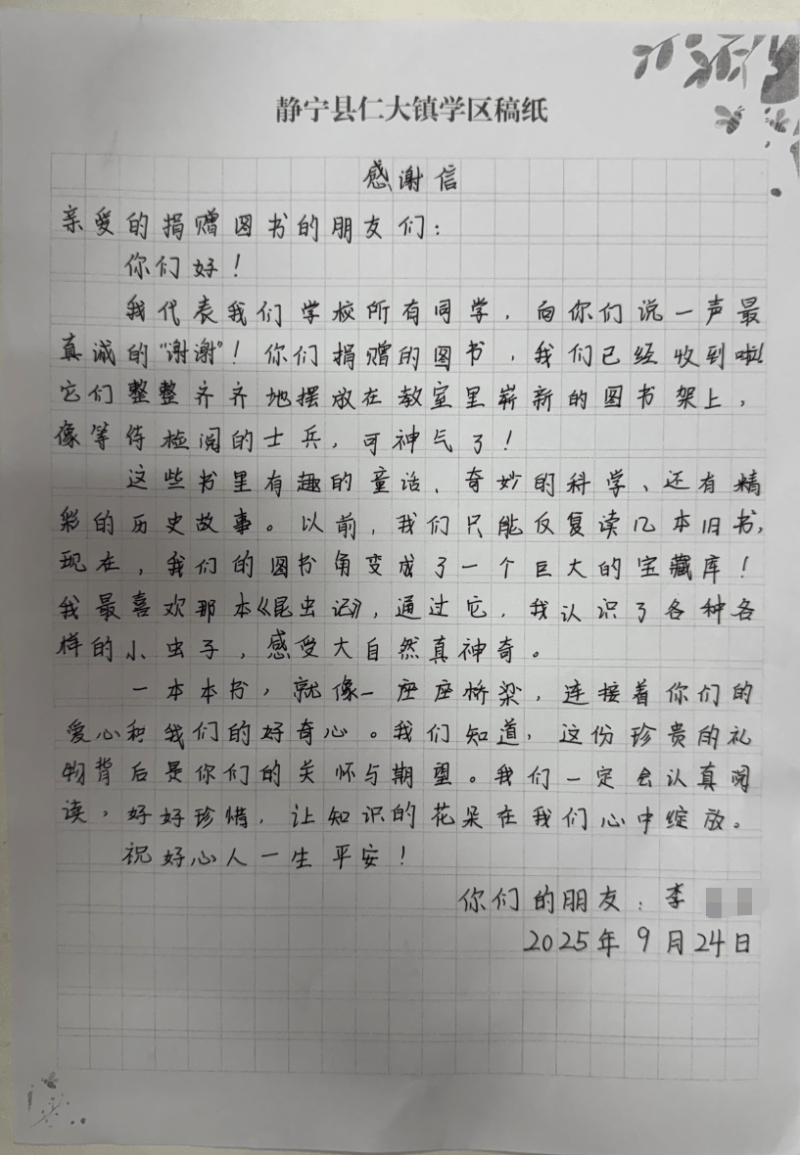 静宁县仁大镇学区稿纸
感谢信
亲爱的捐赠图书的朋友们：
你们好！
我代表我们学校所有同学，向你们说一声最
真诚的“谢谢”！你们捐赠的图书，我们已经收到啦！
它们整整齐齐地摆放在教室里崭新的图书架上，
像等待检阅的士兵，可神气了！
这些书里有趣的童话、奇妙的科学、还有精
彩的历史故事。以前，我们只能反复读几本旧书，
现在，我们的图书角变成了一个巨大的宝藏库！
我最喜欢那本《昆虫记》，通过它，我认识了各种各
样的小虫子，感受大自然真神奇。
一本本书，就像一座座桥梁，连接着你们的
爱心和我们的好奇心。我们知道，这份珍贵的礼
物背后是你们的关怀与期望。我们一定会认真阅
读，好好珍惜，让知识的花朵在我们心中绽放。
祝好心人一生平安！
你们的朋友：李
2025年9月24日